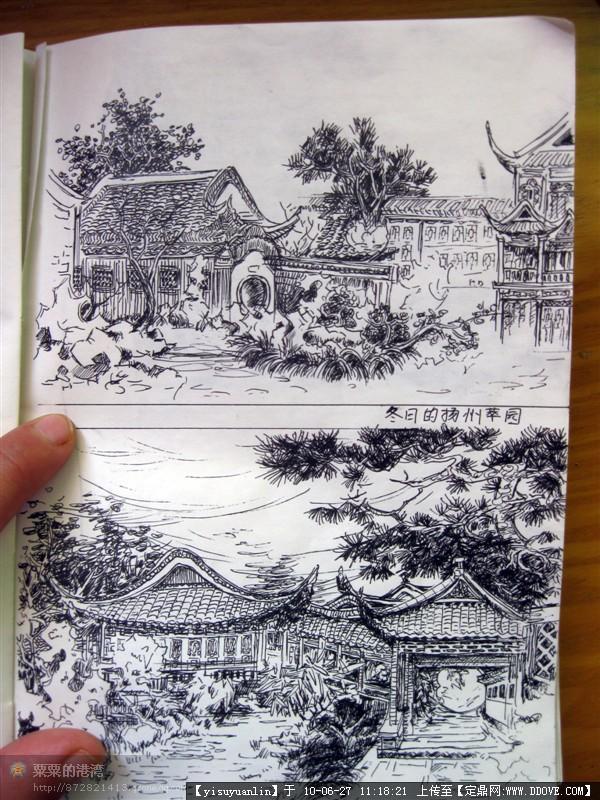 冬日的扬州萃园
粟粟的港湾
http://872821413.
【yisuyuanlin】于 10-06-27 11:18:21 上传至【定鼎网】www.DDOVE.com】